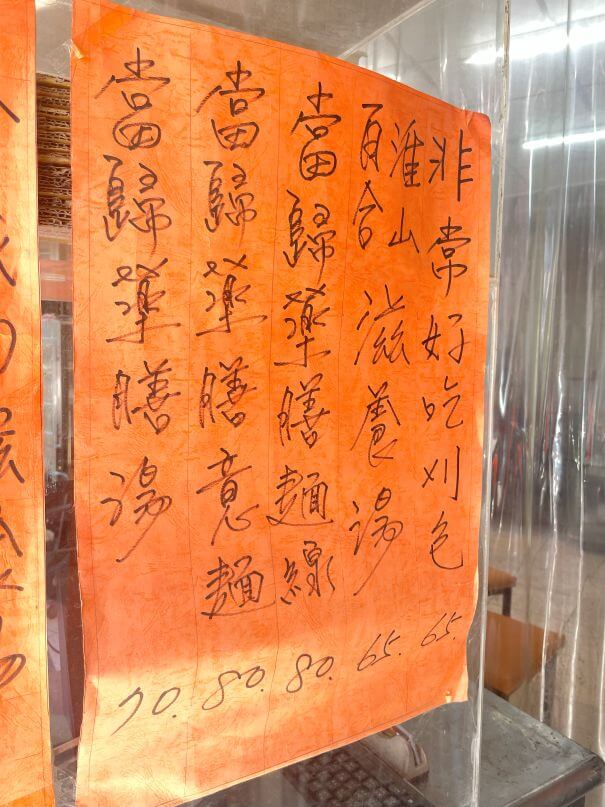 非常好吃刈包 65.
淮山百合滋養湯 65.
當歸藥膳麵線 80.
當歸藥膳意麵 80.
當歸藥膳湯 70.